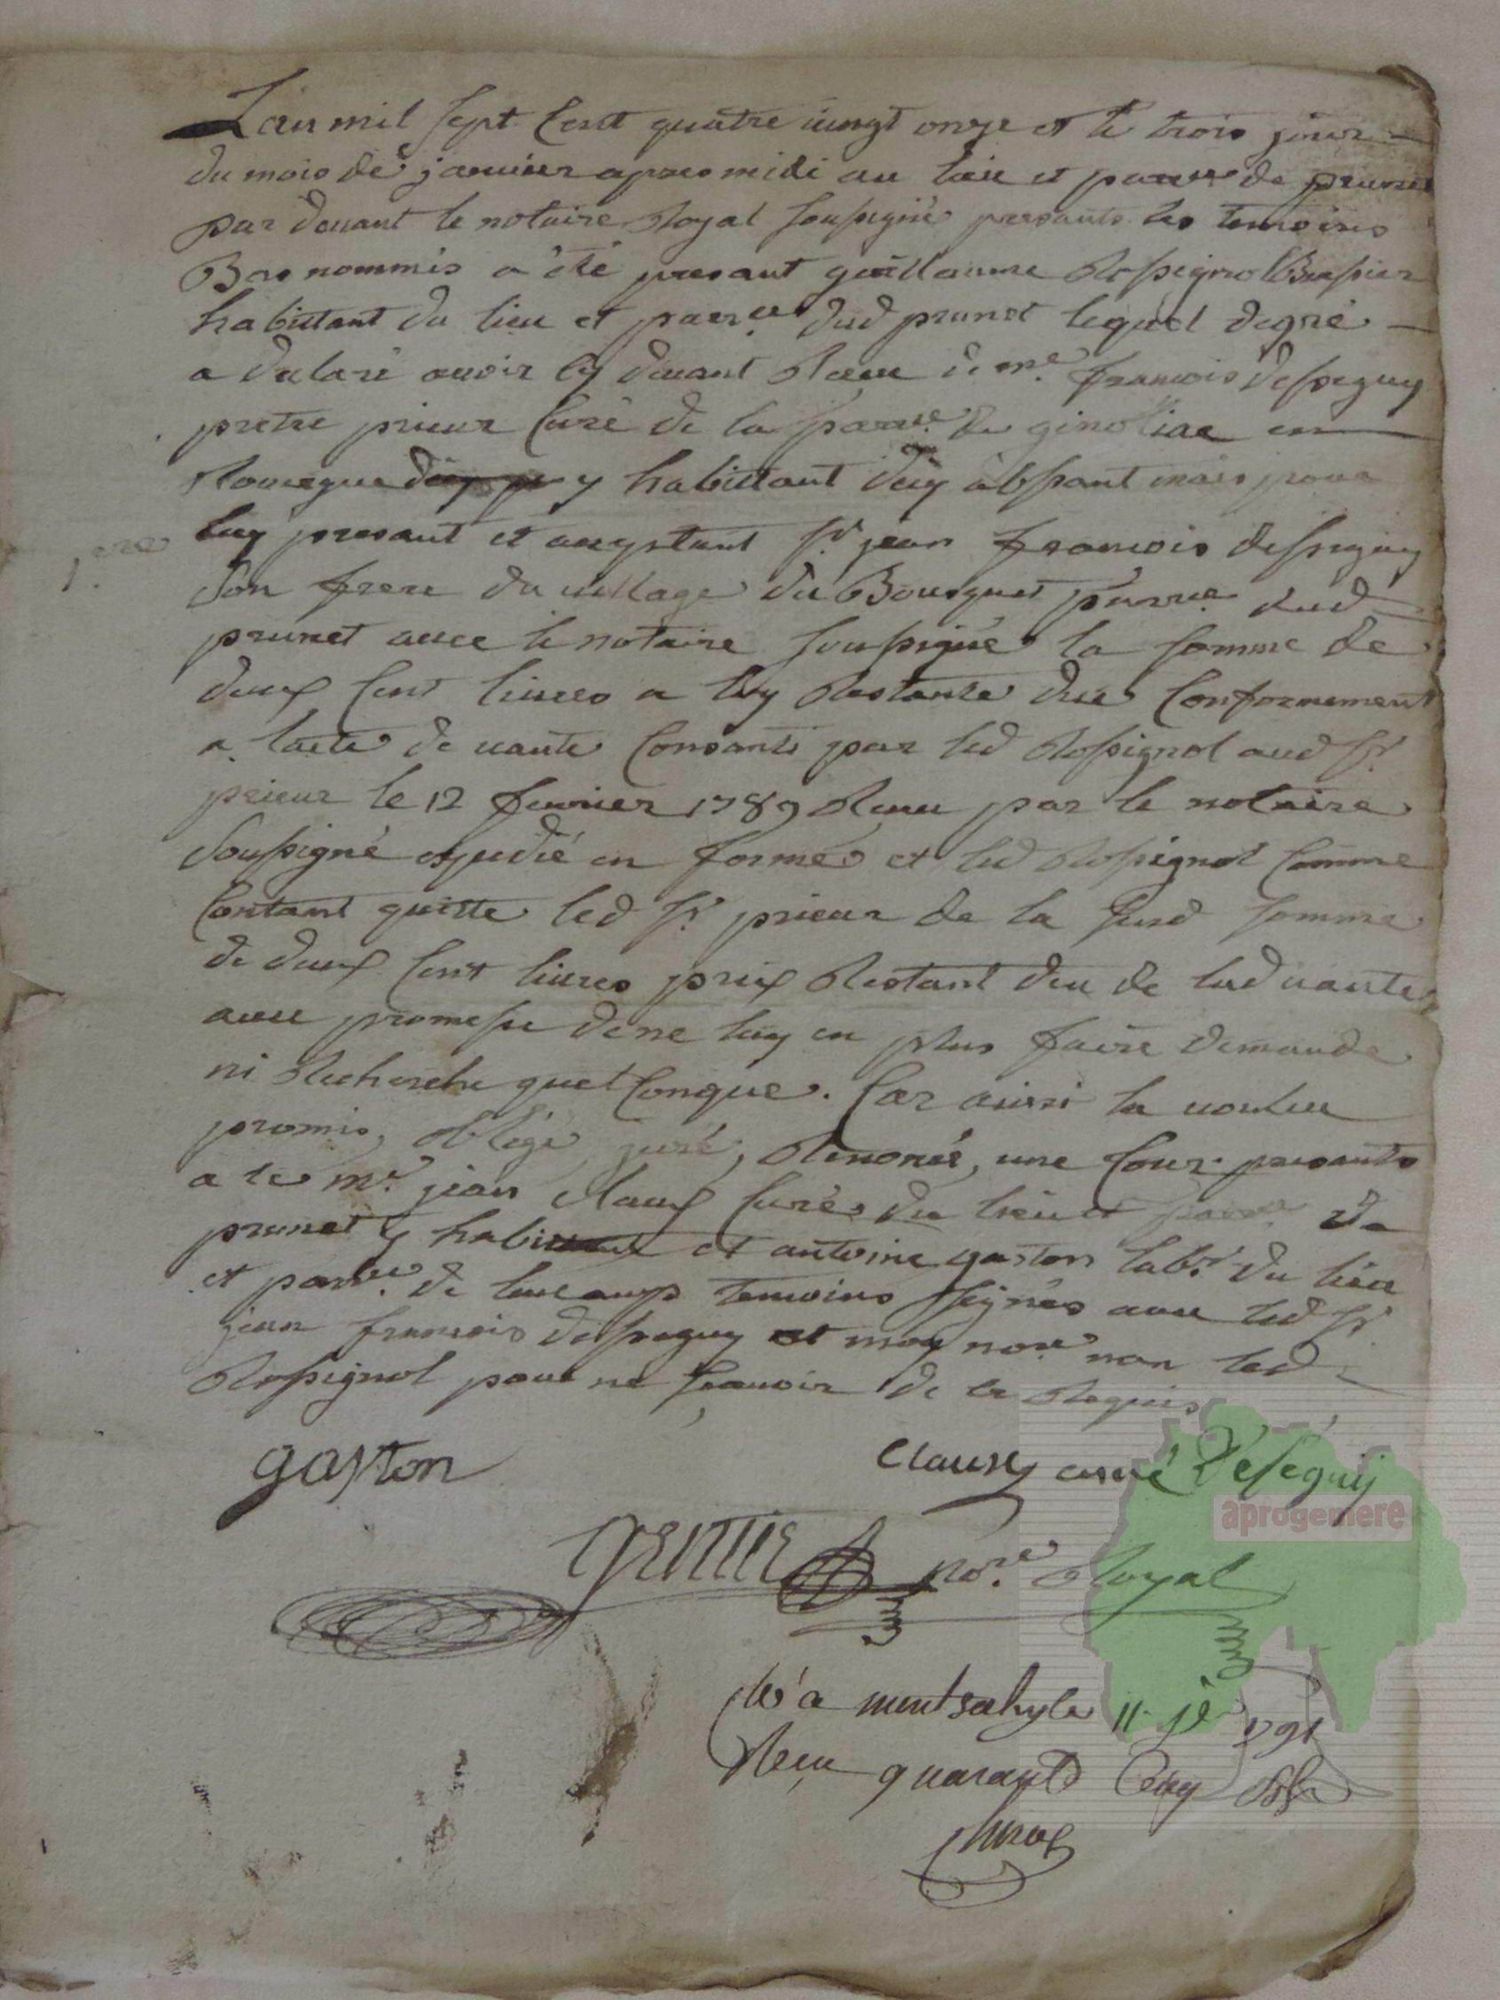 L'an mil sept cent quatre vingt onze et le trois jour
du mois de janvier apres midi au lieu et parr.sse de prunet
par devant le notaire Royal soussigné presants les temoins
Bas nommés a été presant guilaume Rossignol
habittant du lieu et parr.sse dud prunet lequel degré
a declaré avoir cy devant Receu de m.e francois desseguy
pretre prieur curé de la parr.e de ginoliac en
Rouergue y habittant d'icy abssant mais pour
luy presant et aceptant s.r jean francois desseguy
son frere du village du Bousquet parr.e dud
prunet avec le notaire soussigné la somme de
deux cent livres a luy Restante due conformement
a lacte de vante consanti par led Rossignol aud s.r
prieur le 12 fevrier 1789 Receu par le notaire
soussigné expedié en forme et led Rossignol comme
contant quitte led s.r prieur de la susd somme
de deux cent livres prix Restant deu de lad vante
avec promesse de ne luy en plus faire demande
ni Recherche quel conque. Car ainsi la vouleu
promis, obligé, juré, Renoncé, une cour. presants
a ce m.e jean Claux curé du lieu et parr.e de
prunet y habittant et antoine gaston lab.r du lieu
et parr.e de temoins signés avec led s.r
jean francois desseguy et moy no.re non led
Rossignol pour ne scavoir de ce Requis
gaston
Claux curé Désséguy
gentil no.re Royal
aprogemere
11 j.er 1791
Receu quarante